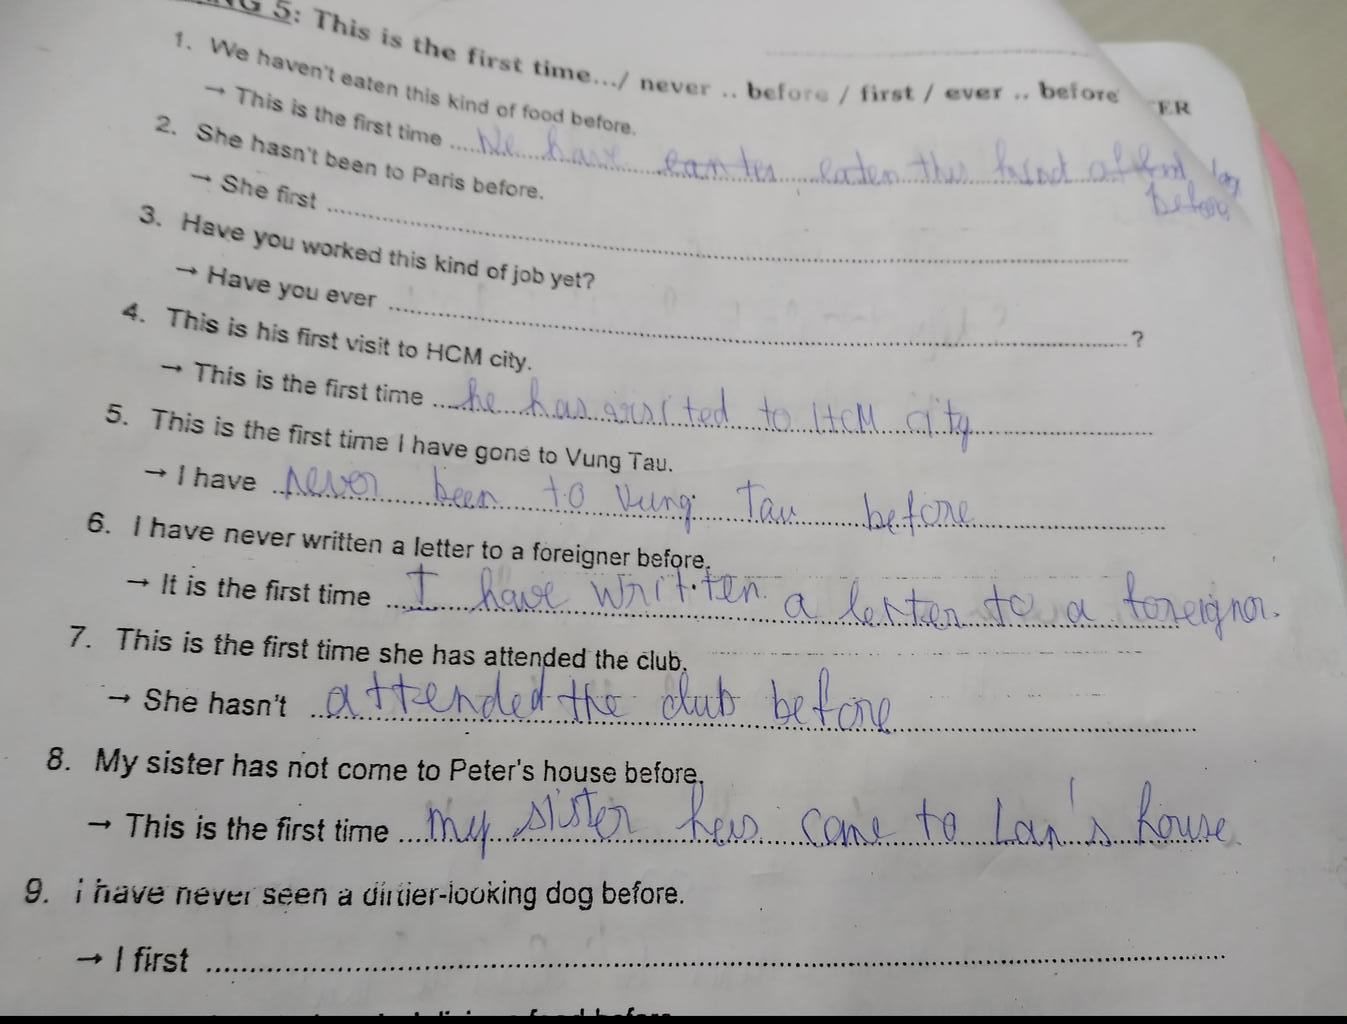 G 5: This is the first time.../ never .. before / first / ever .. before
ER
1. We haven't eaten this kind of food before.
→ This is the first time We have eaten this kind of food
before
2. She hasn't been to Paris before.
→ She first
3. Have you worked this kind of job yet?
→ Have you ever ?
4. This is his first visit to HCM city.
→ This is the first time he has visited to HCM city
5. This is the first time I have gone to Vung Tau.
→ I have never been to Vung Tau before
6. I have never written a letter to a foreigner before.
→ It is the first time I have written a letter to a foreignor.
7. This is the first time she has attended the club.
→ She hasn't attended the club before
8. My sister has not come to Peter's house before.
→ This is the first time my sister has come to Lan's house
9. I have never seen a dirtier-looking dog before.
→ I first